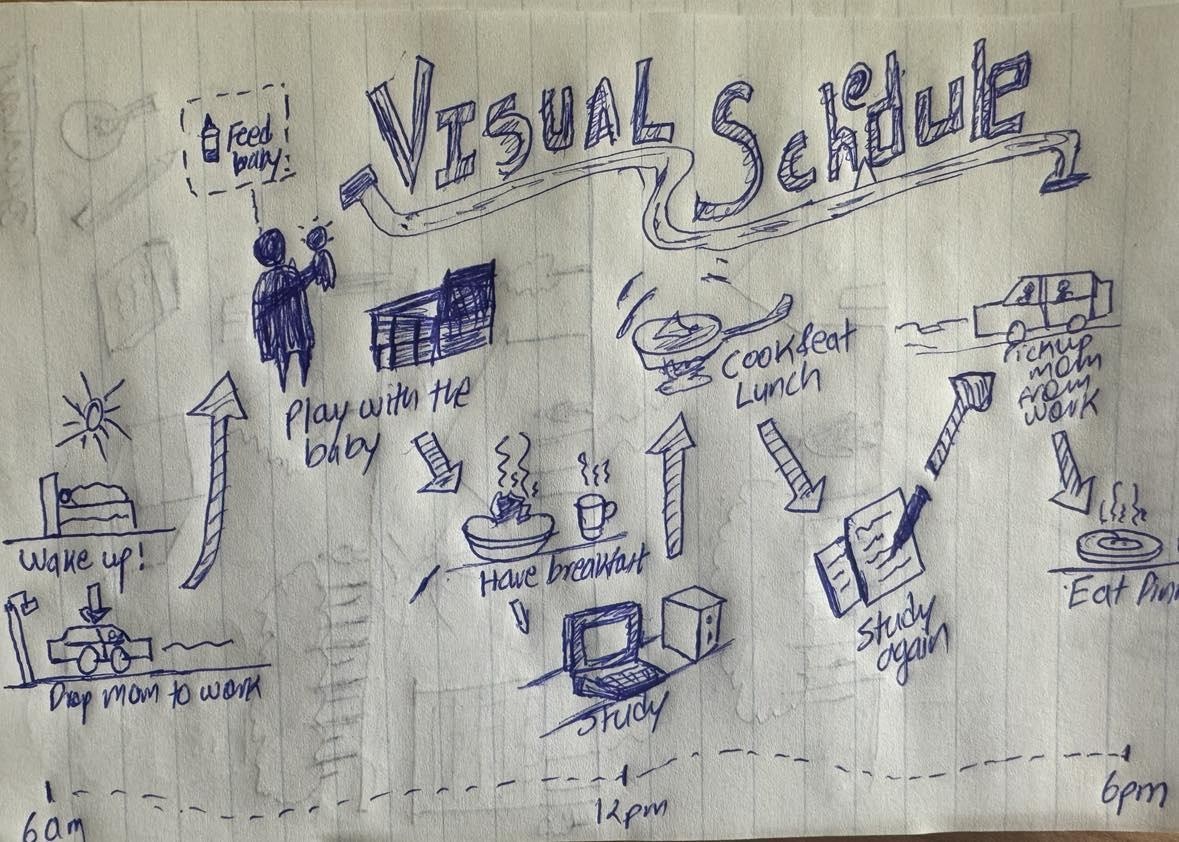 VISUAL Schedule
Feed
baby:
Play with the
baby
Cook & eat
Lunch
Pickup
mom
from
work
Wake up!
Drop mom to work
Have breakfast
Study
Study
again
Eat Dinn
6am
12pm
6pm